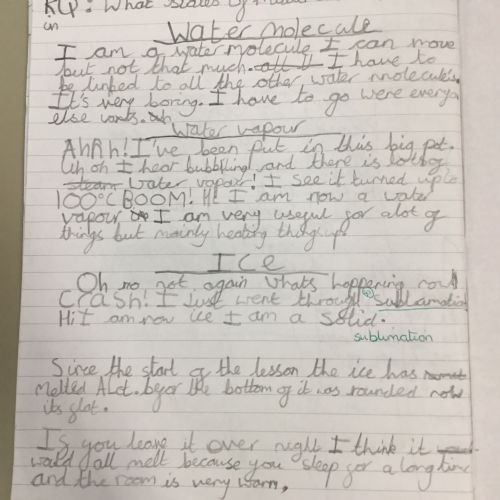 RQ: What states of
Water molecule
I am a water molecule I can move
but not that much. all I I have to
be linked to all the other water molecules
It's very boring. I have to go were everyo
else wants.
Water vapour
AhAh! I've been put in this big pot.
Uh oh I hear bubbling and there is lots of
steam water vapour! I see it turned up to
100°C BOOM! Hi I am now a water
vapour I am very useful for alot of
things but mainly heating things up
ICe
Oh no not again whats happening now
Crash! I Just went through sublamation
Hi I am now ice I am a solid.
sublimation
Since the start of the lesson the ice has
Melted Alot. befor the bottom of it was rounded now
its flat.
If you leave it over night I think it
would all melt because you sleep for a long time
and the room is very warm.